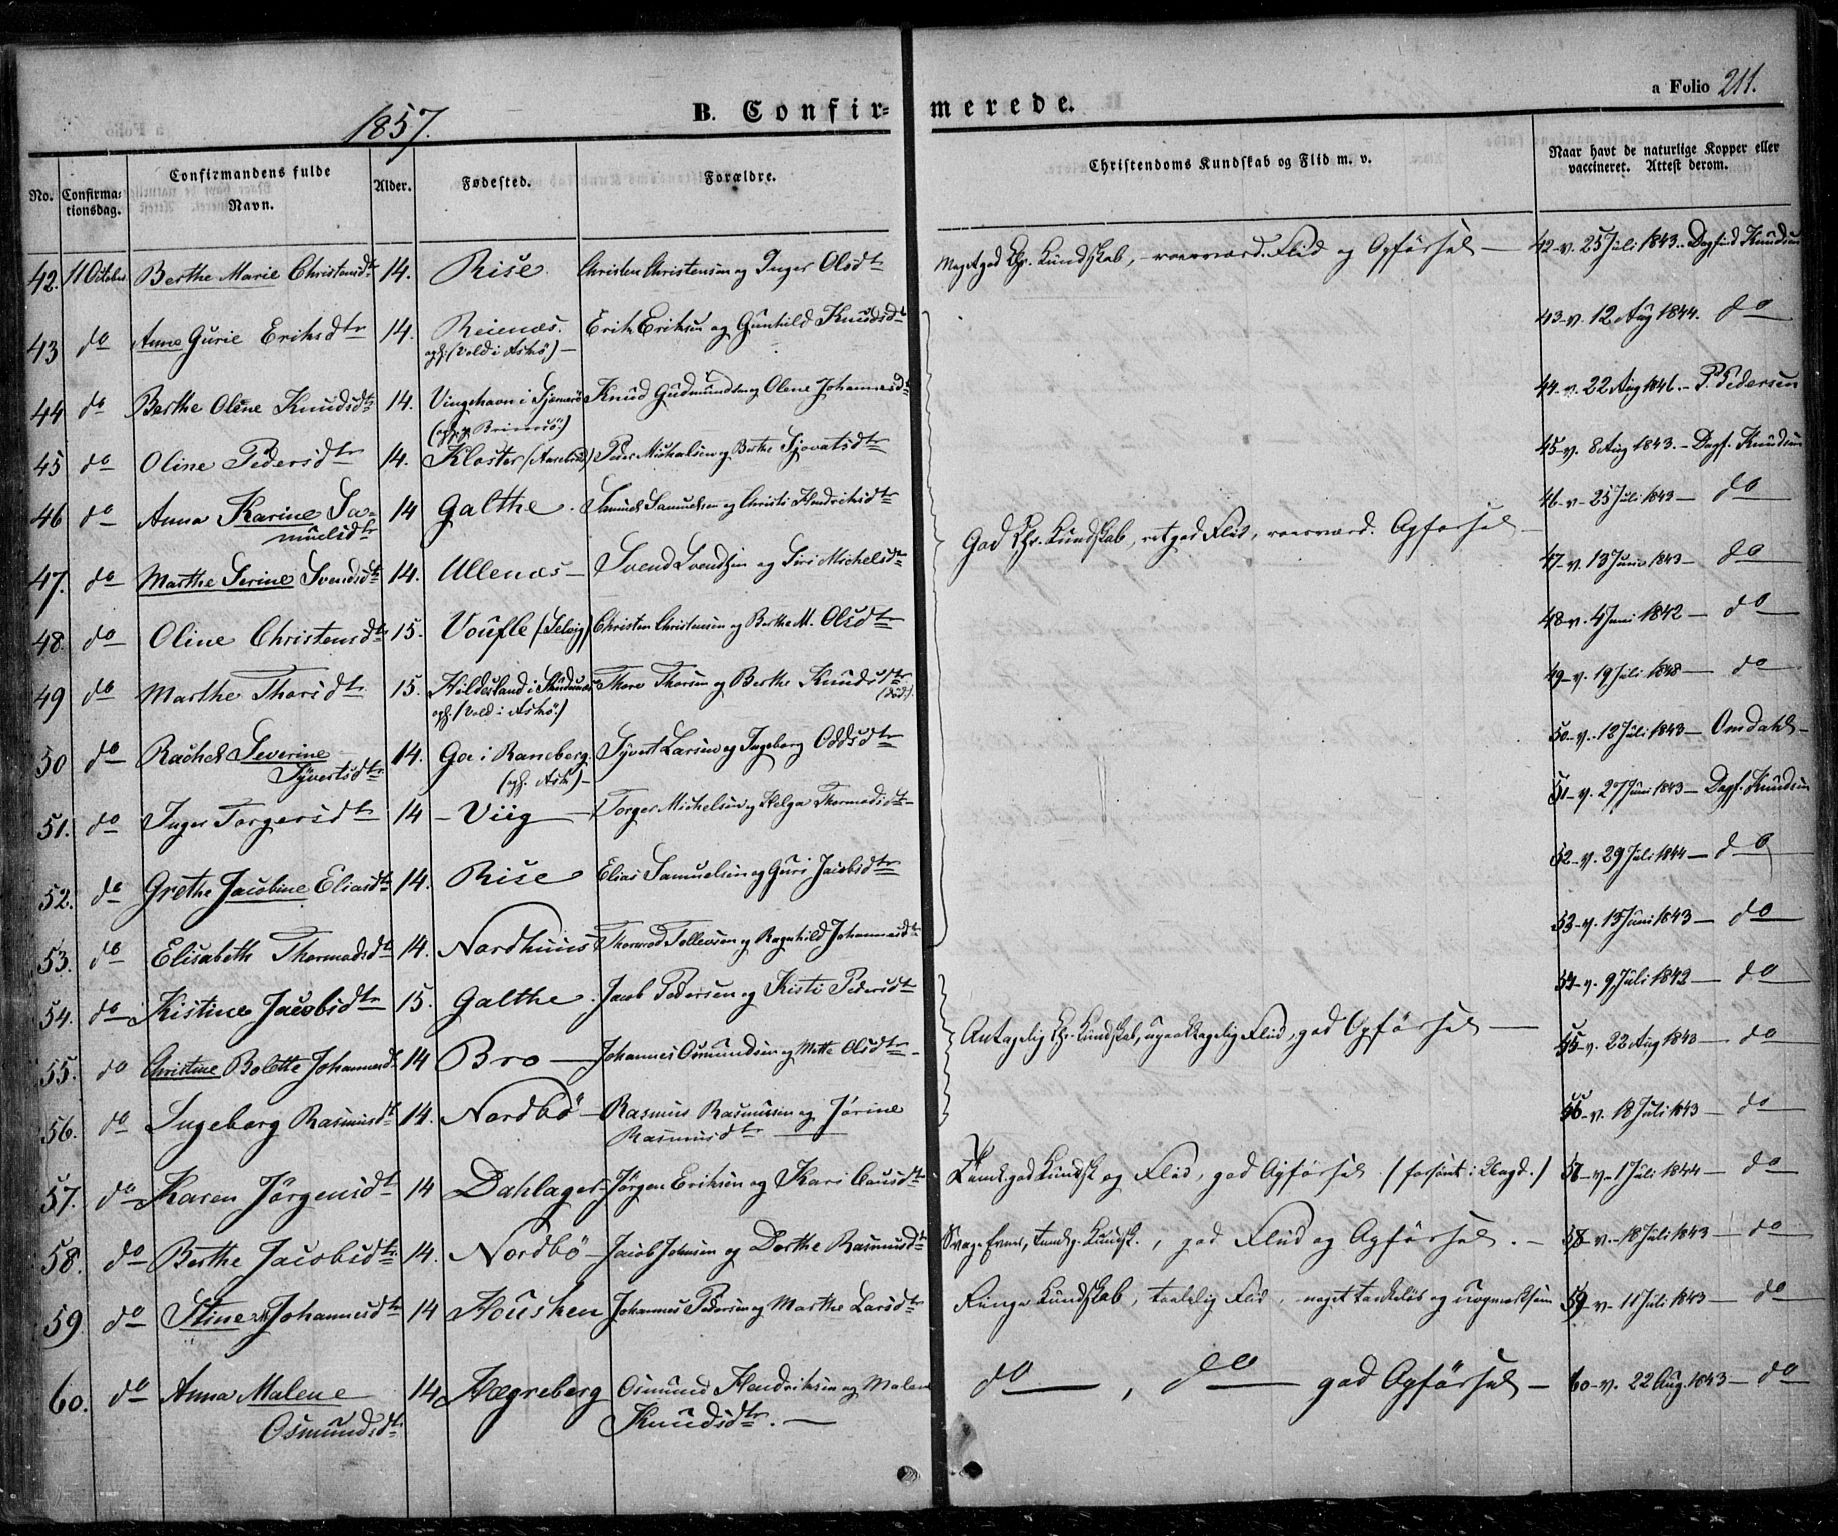 a Folio 211.
1857.
B. Confirmerede.
No.
Confirmationsdag.
Confirmandens fulde Navn.
Alder.
Fødested.
Forældre.
Christendoms Kundskab og Flid m. v.
Naar havt de naturlige Kopper eller vaccineret. Attest derom.
42. 11 October Berthe Marie Christensdtr 14. Rise. Christen Christensen og Inger Olsdtr Meget god Chr. Kundskab, roesværd. Flid og Opførsel — 42 - v. 25 Juli 1843. Dagfind Knudsen
43 do Anne Gurie Eriksdtr 14. Reienæs. Erik Eriksen og Gunhild Knudsdtr 43 - v. 12 Aug 1844. do
oph. (Vold i Askø) —
44 do Berthe Oline Knudsdtr 14. Vingehavn i Sjernerø Knud Gudmundsen og Olene Johannesdtr 44 - v. 22 Aug 1846. - P. Pedersen
45 do Oline Pedersdtr 14. Kloster Peder Michelsen og Berthe Sjovatsdtr 45 - v. 8 Aug 1843. - Dagf. Knudsen
46 do Anna Karine Sa- 14 Galthe. Samuel Samuelsen og Christi Hendriksdtr 46 - v. 25 Juli 1843 — do
muelsdtr
God Chr. Kundskab, ret god Flid, roesværd. Opførsel —
47. do Marthe Serine Svendsdtr 14. Ullenæs — Svend Svendsen og Siri Michelsdtr 47 - v. 13 Juni 1843 — do
48. do Oline Christensdtr 15. Voufle (Selvig) Christen Christensen og Berthe M. Olsdtr 48 - v. 4 Juni 1842 — do
49 do Marthe Thorsdtr 15. Hildesland i Skudenæs Thore Thorsen og Berthe Knudsdtr 49 - v. 19 Juli 1848 — do
oph. (Vold i Askø.) (død).
50 do Rachel Severine 14. Goe i Raneberg. Syvert Larsen og Ingeborg Oddsdtr 50 - v. 12 Juli 1843 — Omdahl —
Syvertsdtr (oph. Askø) —
51. do Inger Torgersdtr 14 — Viig — Torger Michelsen og Helga Thormodsdtr 51 - v. 27 Juni 1843 — Dagf. Knudsen
52. do Grethe Jacobine Eliasdtr 14. Rise Elias Samuelsen og Guri Jacobsdtr 52 - v. 29 Juli 1844 — do
53. do Elisabeth Thormodsdtr 14. Nordhuus Thormod Tollevsen og Ragnhild Johannesdtr 53 - v. 13 Juni 1843 — do
54. do Kistine Jacobsdtr 15. Galthe. Jacob Pedersen og Kisti Pedersdtr 54 - v. 9 Juli 1842 — do
Antagelig Chr. Kundskab, upaaklagelig Flid, god Opførsel —
55. do Christine Bolette Johannesdtr 14 Bro — Johannes Osmundsen og Mette Olsdtr 55 - v. 22 Aug 1843 — do
56. do Ingeborg Rasmusdtr 14. Nordbø — Rasmus Rasmussen og Jørine 56 - v. 18 Juli 1843 — do
Rasmusdtr
57. do Karen Jørgensdtr 14 Dahlager — Jørgen Eriksen og Kari god Kundsk og Flid, god Opførsel 57 - v. 1 Juli 1844 — do
58. do Berthe Jacobsdtr. 14. Nordbø — Jacob Johnsen og Dorthe Rasmusdtr Svage Evner, Kundsk., god Flid og Opførsel. — 58 - v. 18 Juli 1843 — do
59 do Stine Johannesdtr 14 Houshen Johannes Pedersen og Marthe Larsdtr Ringe Kundskab, taalelig Flid, noget tankeløs og uopmærksom 59 - v. 11 Juli 1843 — do
60. do Anna Malene 14 Hægreberg Osmund Hendriksen og Malene do, do god Opførsel — 60 - v. 22 Aug. 1843 — do
Osmundsdtr Knudsdtr. —